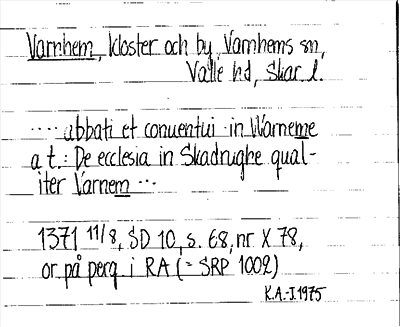 Varnhem, kloster och by, Varnhems sn,
Valle hd, Skar. l.
.... abbati et conuentui in Warneme
a t.: De ecclesia in Skadrughe qual-
iter Varnem ...
1371 11/8, SD 10, s. 68, nr X 78,
or. på perg. i RA (= SRP 1002)
K.A.-J. 1975